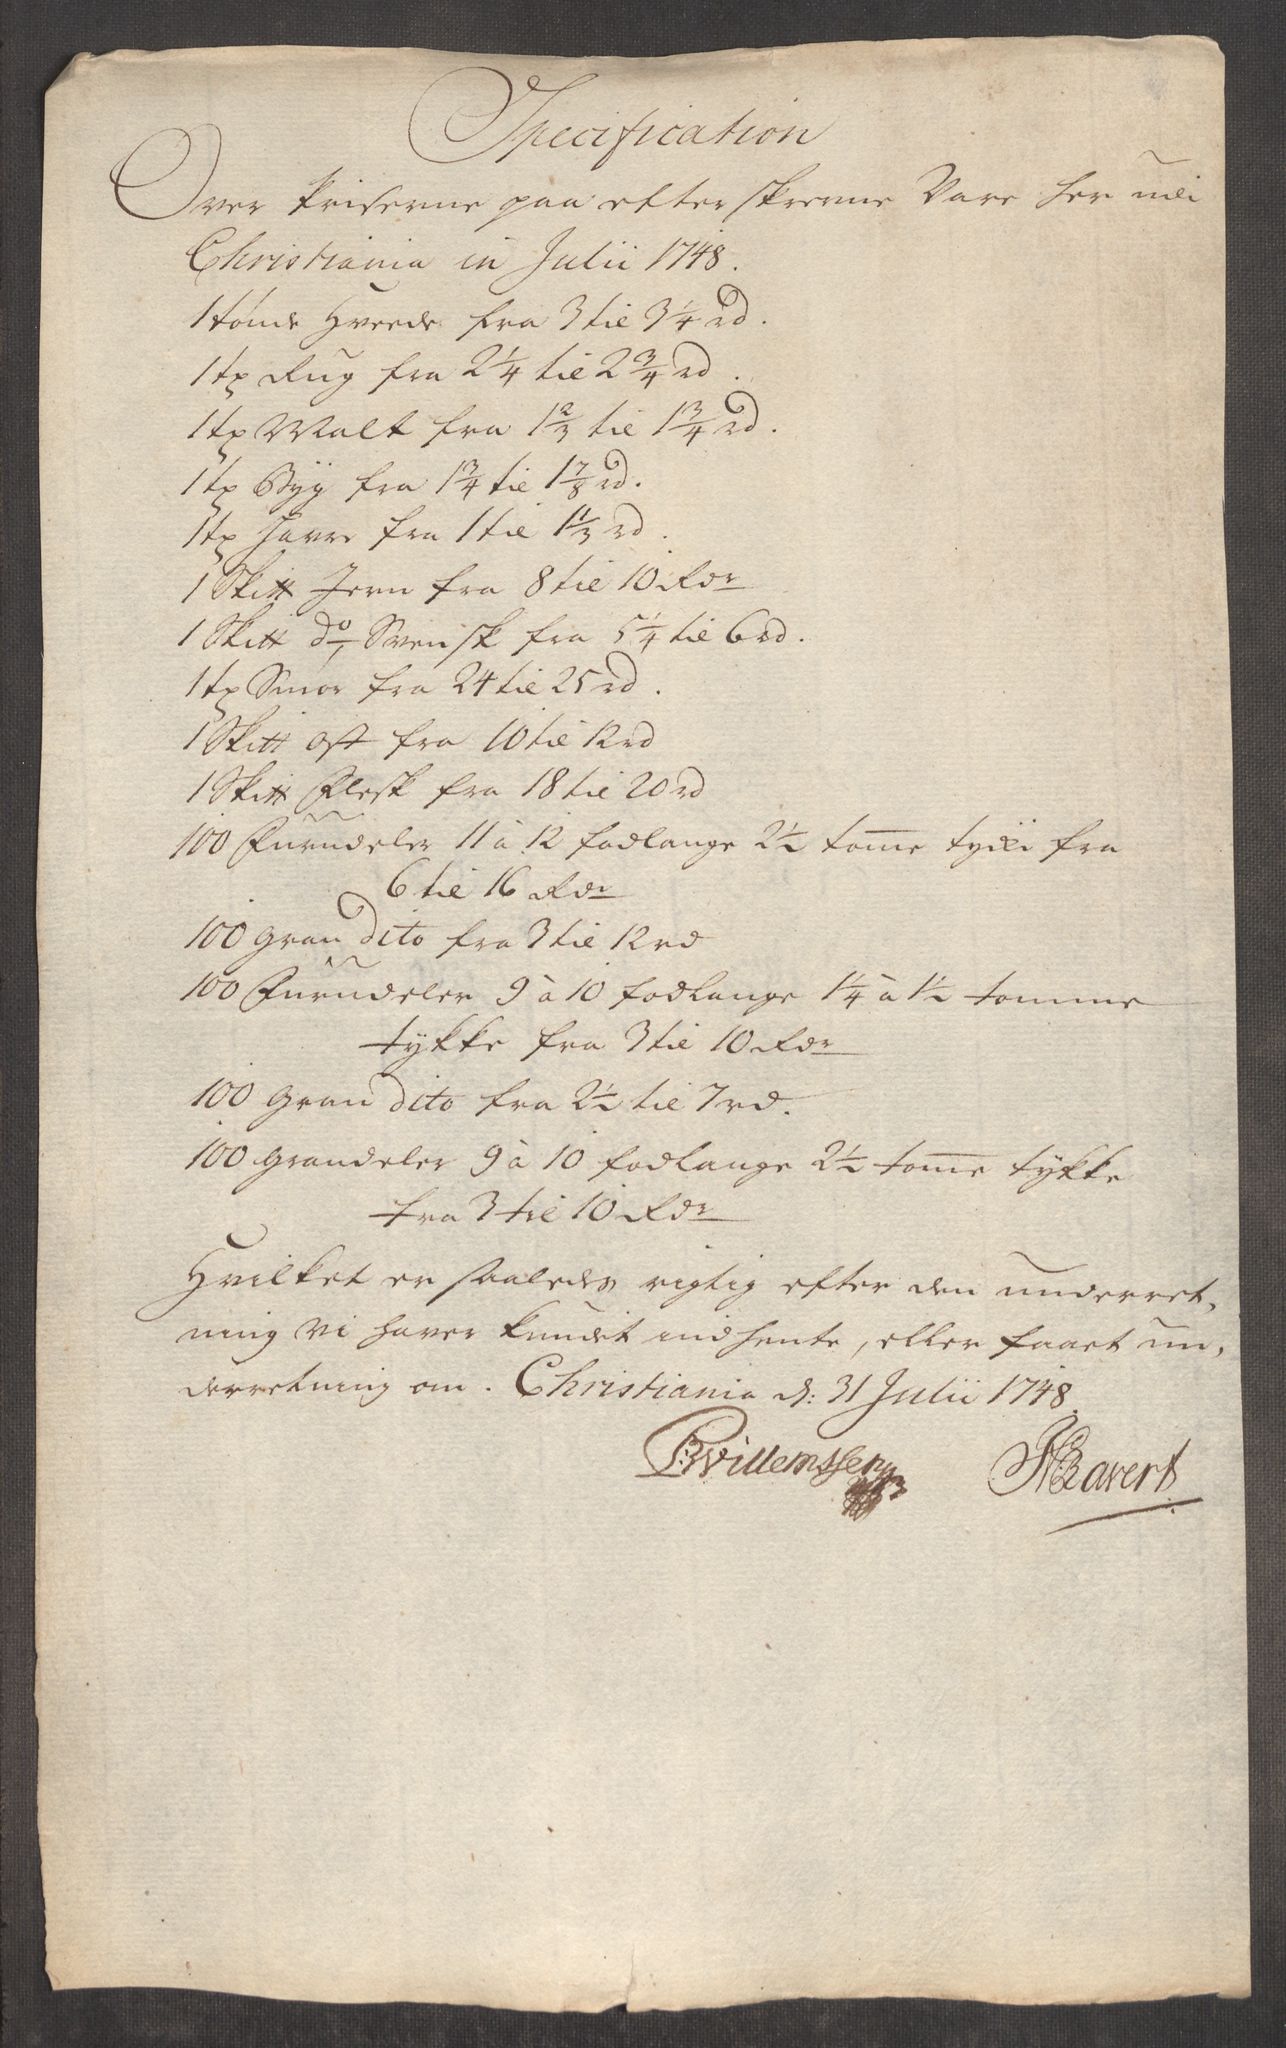 Specification
Over Priserne paa efterskrevne Vare her udi
Christiania in Julii 1748.
1 tønde Hveede fra 3 til 3 1/4 rd.
1 tø Rug fra 2 1/4 til 2 3/4 rd.
1 tø Malt fra 1 2/3 til 1 3/4 rd.
1 tø Byg fra 1 3/4 til 1 7/8 rd.
1 tø Havre fra 1 til 1 1/3 rd.
1 Skt Jern fra 8 til 10 Rdr
1 Skt do Svensk fra 5 1/4 til 6 rd.
1 tø Smør fra 24 til 25 rd.
1 Skt Ost fra 10 til 12 rd
1 Skt Flesk fra 18 til 20 rd
100 Furudeler 11 à 12 fodlange 2 1/2 tome tyke fra
6 til 16 Rdr
100 gran Dito fra 3 til 12 rd
100 Furudeler 9 à 10 fodlange 1 1/4 à 1 1/2 tomme
tykke fra 3 til 10 Rdr
100 gran Dito fra 2 1/2 til 7 rd.
100 grandeler 9 à 10 fodlange 2 1/2 tome tykke
fra 3 til 10 Rdr
Hvilket er saaledes rigtig efter den underret,
ning vi haver kundet indhente, eller faaet un,
derretning om. Christiania d: 31 Julii 1748.
Willemssen